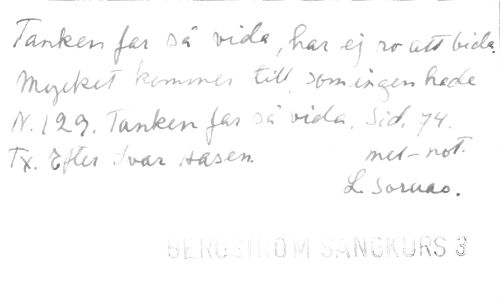 Tanken far så vida, har ej ro att bida.
Mycket kommer till, som ingen hade
N. 129. Tanken far så vida. Sid. 74.
Tx. Efter Ivar Aasen. mel-not.
L. Soruao.
BERGSTRÖM SÅNGKURS 3